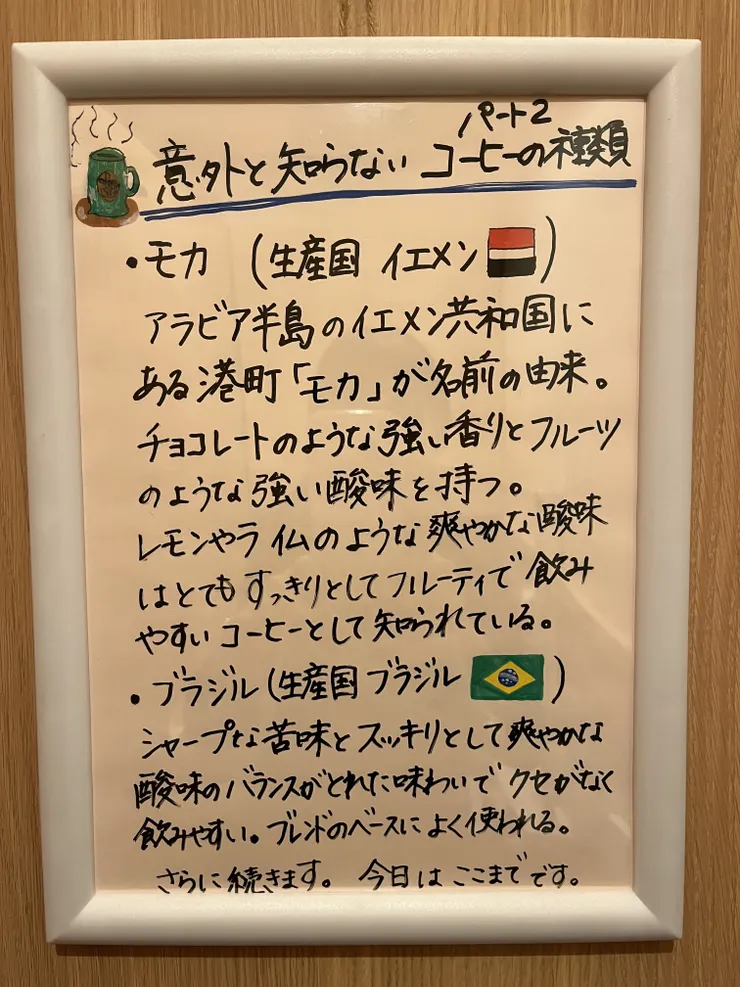 パート2
意外と知らない コーヒーの種類
・モカ (生産国 イエメン)
アラビア半島のイエメン共和国に
ある港町「モカ」が名前の由来。
チョコレートのような強い香りとフルーツ
のような強い酸味を持つ。
レモンやライムのような爽やかな酸味
はとてもすっきりとしてフルーティで飲み
やすいコーヒーとして知られている。
・ブラジル(生産国 ブラジル)
シャープな苦味とスッキリとして爽やかな
酸味のバランスがとれた味わいでクセがなく
飲みやすい。ブレンドのベースによく使われる。
さらに続きます。 今日はここまでです。